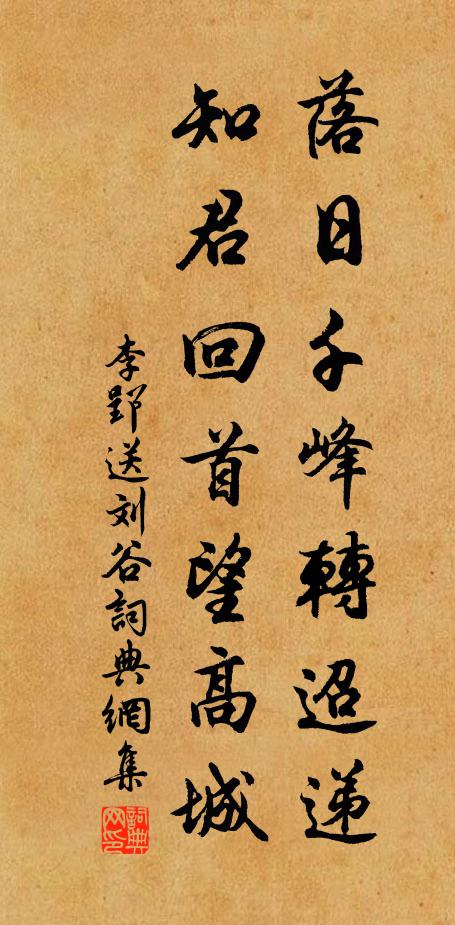 落日千峰轉迢递
知君回首望高城
李郢送刘谷詞典網集
詞典网印